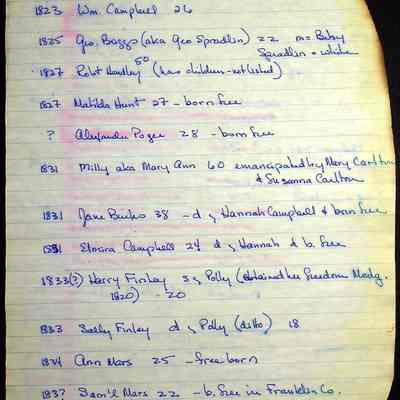 1823 Wm. Campbell 26
1825 Geo. Boggs (aka Geo Spradlin) 22 m = Betsy
Spradlin = white
1827 Robt Handley 50 (has children - not listed)
1827 Matilda Hunt 27 - born free
? Alexander Poger 28 - born free
1831 Milly aka Mary Ann 60 emancipated by Mary Carlton
& Susanna Carlton
1831 Jane Burks 38 - d of Hannah Campbell & born free
1831 Elmira Campbell 24 d of Hannah & b. free
1833(?) Harry Finley s of Polly (obtained her freedom Mody.
1820) - 20
1833 Sally Finley d of Polly (ditto) 18
1834 Ann Mars 25 - free born
1837 Sam'l Mars 22 - b. free in Franklin Co.